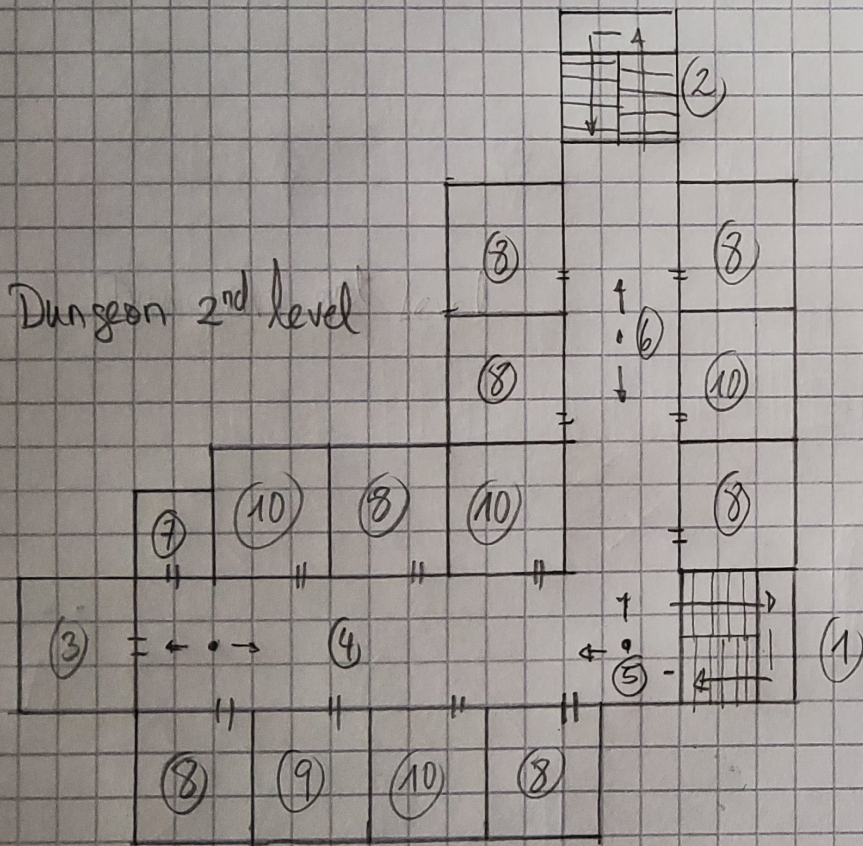 2
8 8
Dungeon 2nd level
6
8 10
10 8 10 8
7
3 4 5 1
8 9 10 8